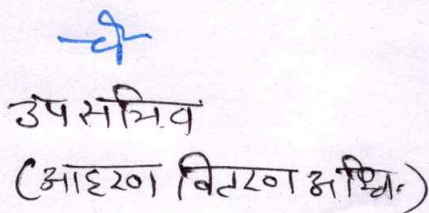 उप सचिव
(आहरण वितरण अधि.)